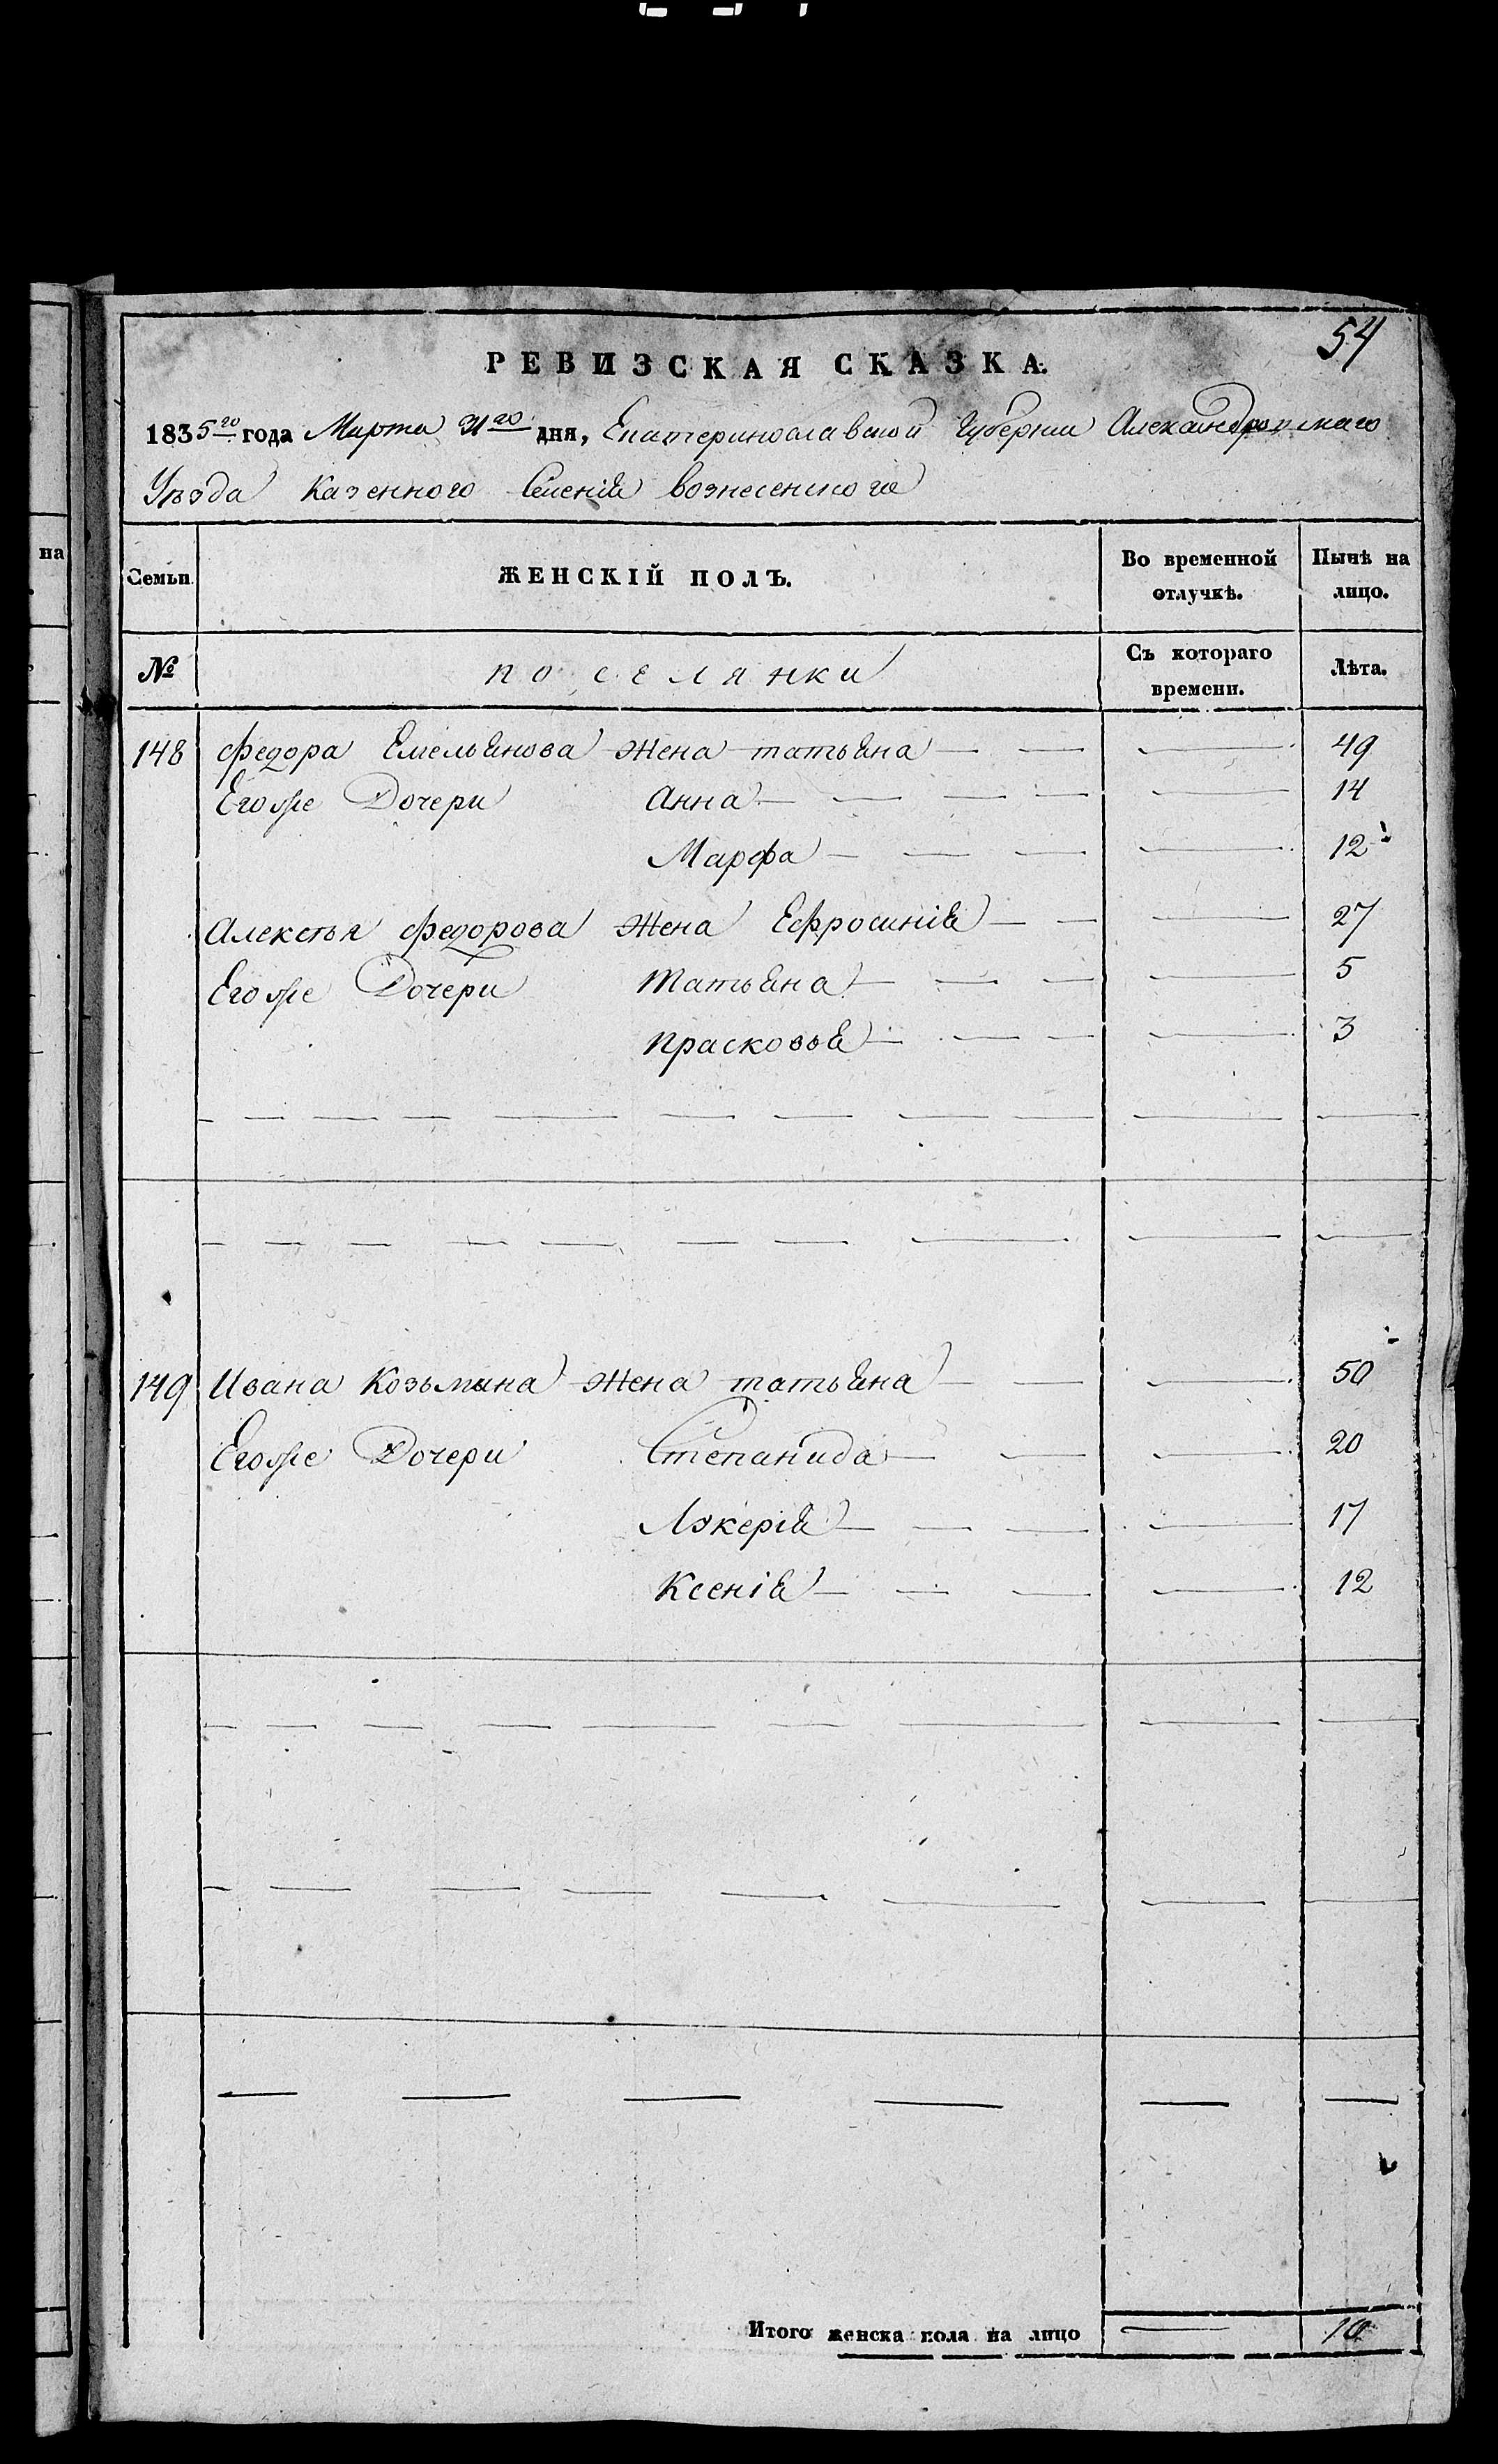 54
РЕВИЗСКАЯ СКАЗКА.
1835го года Марта 31го дня, Екатеринославской Губернии Александровскаго
Уѣзда Казенного Селенія вознесенского
на
Семьи. ЖЕНСКІЙ ПОЛЪ. Во временной отлучкѣ. Нынѣ на лицо.
№ поселянки Съ котораго времени. Лѣта.
148 Федора Емельянова жена татьяна — — — 49
Егоже Дочери Анна — — — — — 14
Марфа — — — — 12
Алексѣя Федорова жена Ефросинія — — — 27
Егоже Дочери Татьяна — — — — 5
прасковья — — — — 3
149 Ивана Козьмина жена татьяна — — — 50
Егоже Дочери Степанида — — — 20
Лукерія — — — — 17
Ксенія — — — — 12
Итого женска пола на лицо — 10